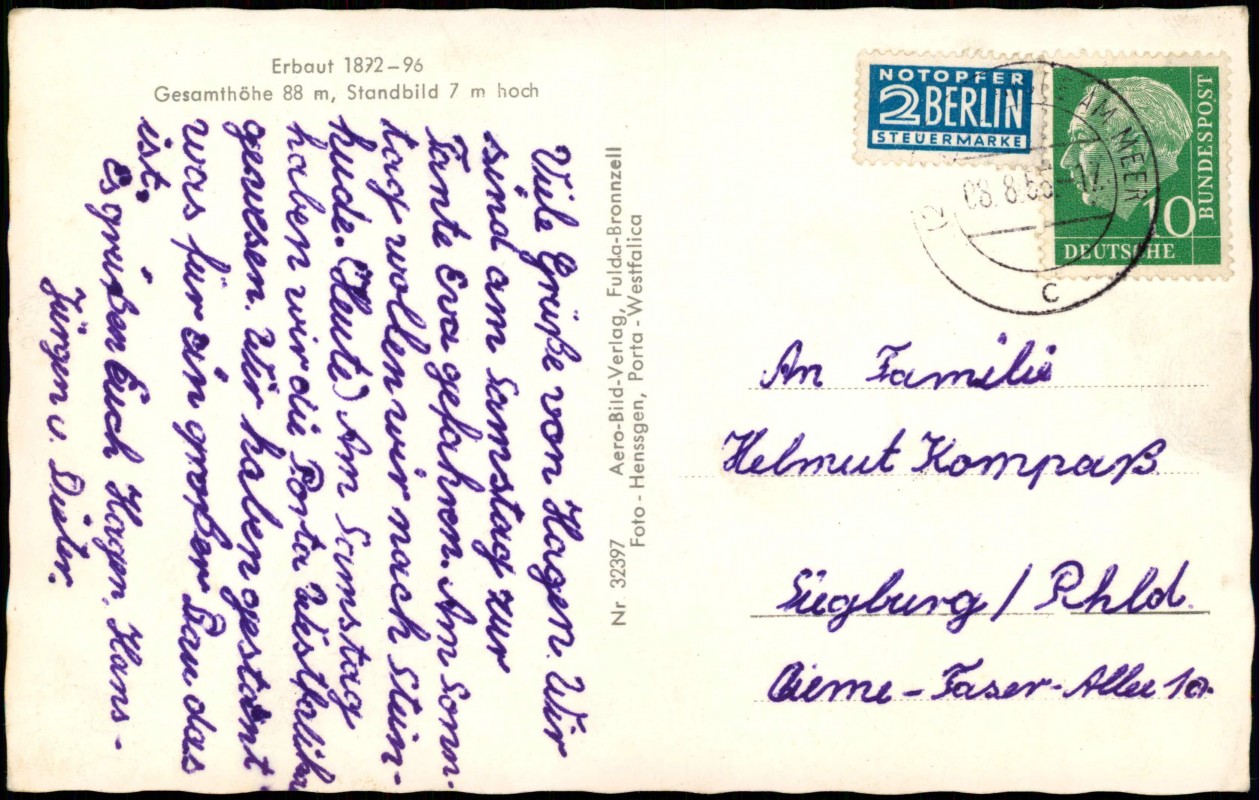 Erbaut 1872–96
Gesamthöhe 88 m, Standbild 7 m hoch
Viele Grüße von Hagen. Wir
sind am Samstag zur
Tante Eva gefahren. Am Sonn-
tag wollen wir nach Stein-
hude. (Heute) Am Samstag
haben wir die Porta Westfalika
gewesen. Wir haben gestaunt
was für ein großer Bau das
ist.
Es grüßen Euch Hagen, Hans-
Jürgen u. Dieter.
Nr. 32397 Aero-Bild-Verlag, Fulda-Bronnzell
Foto - Henssgen, Porta - Westfalica
NOTOPFER
2 BERLIN
STEUERMARKE
AM MEER
08.8.
c
10
DEUTSCHE
BUNDESPOST
An Familie
Helmut Kompaß
Siegburg / Rhld.
-Faser-Allee 10.